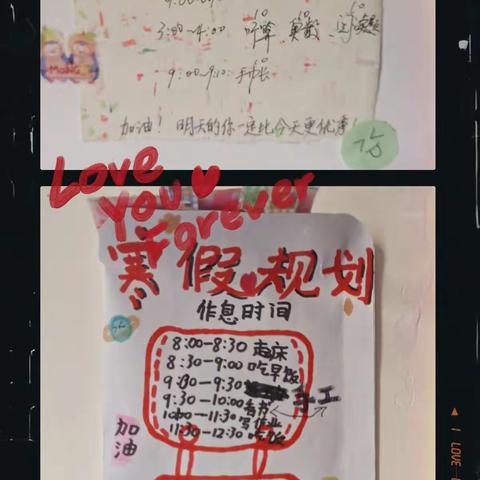 3:00-4:00 听算 莫
9:00-9:10:手长
加油! 明天的你一定比今天更优秀!
MaNG
Love
you
Forever
寒假规划
作息时间
8:00-8:30 起床
8:30-9:00 吃早饭
9:00-9:30 手工
9:30-10:00 看书
10:00-11:30 写作业
11:30-12:30 吃饭
加油
I LOVE